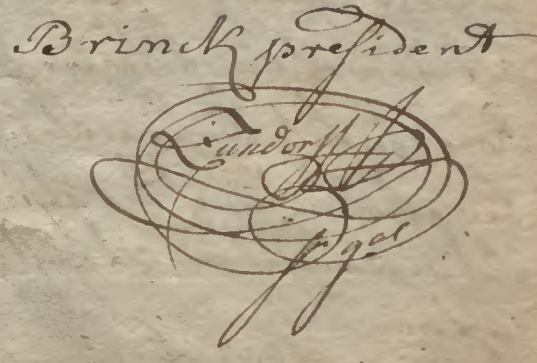 Brinck preſident
Zundorff